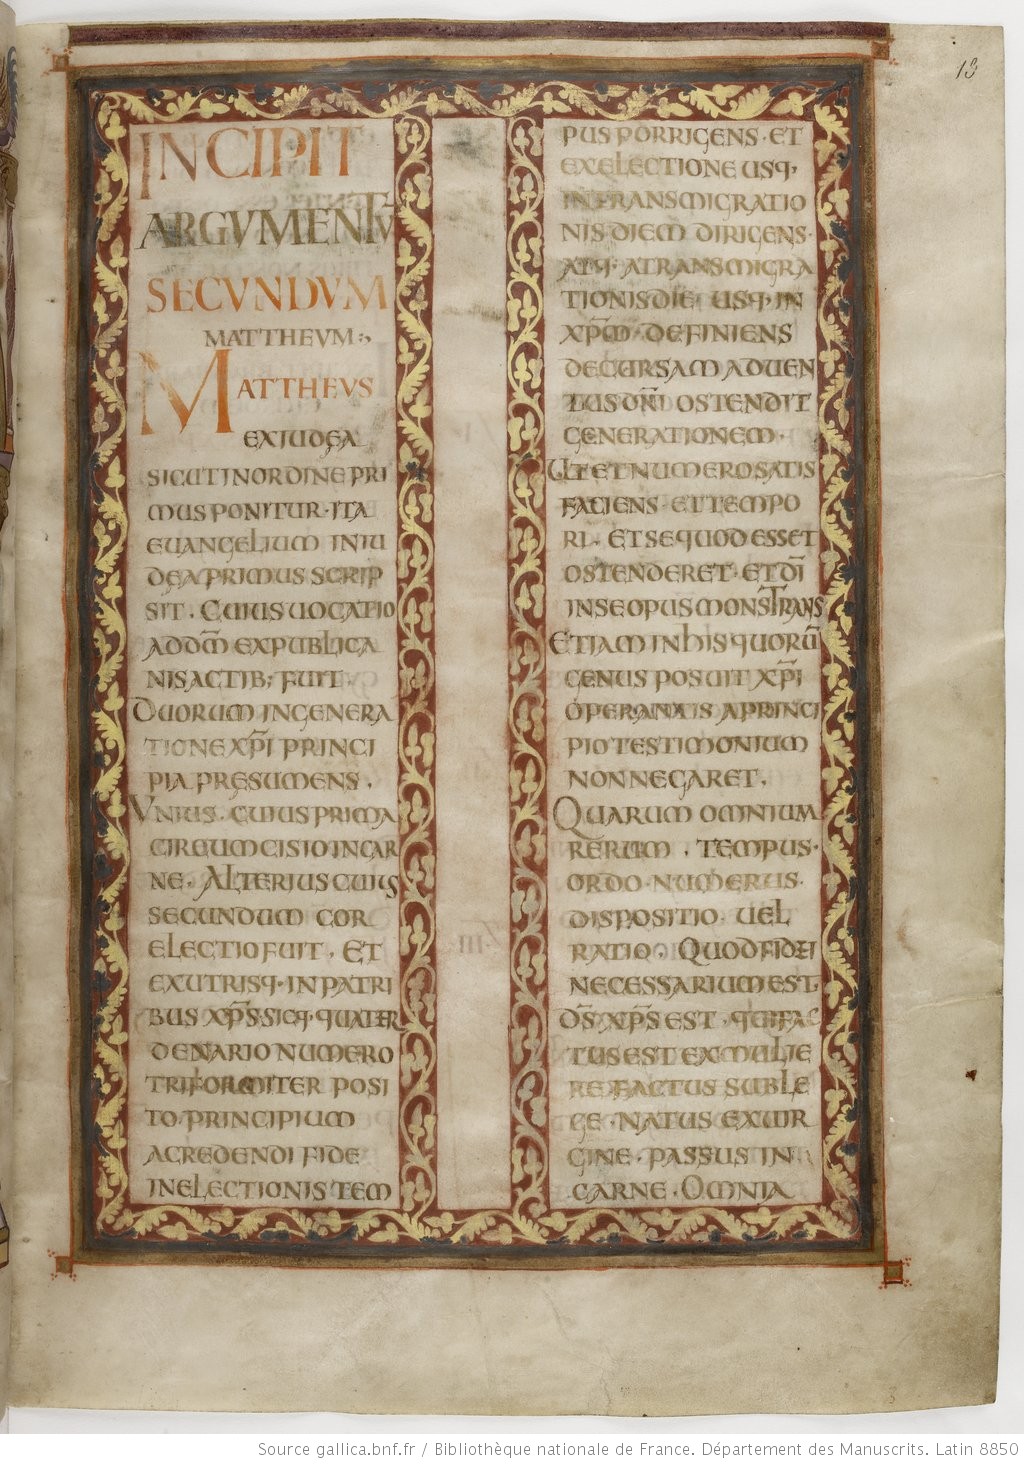 13
INCIPIT
ARGVMENTŪ
SECVNDVM
MATTHEVM:,
MATTHEVS
EXIUDEA
SICUTINORDINE PRI
MUS PONITUR · ITA
EUANGELIUM INIU
DEA PRIMUS SCRIP
SIT . CUIUS UOCATIO
ADDM̄ EXPUBLICA
NIS ACTIB; FUIT ·
DUORUM INGENERA
TIONE XP̄I PRINCI
PIA PRESUMENS .
UNIUS · CUIUS PRIMA
CIRCUMCISIO INCAR
NE · ALTERIUS CUIUS
SECUNDUM COR
ELECTIO FUIT . ET
EXUTRISQ · INPATRI
BUS XP̄S · SICQ · QUATER
DENARIO NUMERO
TRIFORMITER POSI
TO · PRINCIPIUM
ACREDENDI FIDE
INELECTIONIS TEM
PUS PORRIGENS · ET
EXELECTIONE USQ ·
INTRANSMIGRATIO
NIS DIEM DIRIGENS ·
ATQ · ATRANSMIGRA
TIONIS DIE · USQ · IN
XP̄M · DEFINIENS
DECURSAM ADUEN
TUS DN̄I OSTENDIT
GENERATIONEM ·
UT ET NUMERO SATIS
FACIENS · ET TEMPO
RI . ET SE QUOD ESSET
OSTENDERET · ET DĪ
INSE OPUS MONSTRANS
ETIAM INHIS QUORŪ
GENUS POSUIT XP̄I
OPERANTIS APRINCI
PIO TESTIMONIUM
NON NEGARET .
QUARUM OMNIUM
RERUM . TEMPUS ·
ORDO · NUMERUS ·
DISPOSITIO · UEL
RATIO · QUOD FIDEI
NECESSARIUM EST ·
DS̄ XP̄S EST · QUI FAC
TUS EST EX MULIE
RE FACTUS SUB LE
GE · NATUS EXUIR
GINE · PASSUS IN
CARNE · OMNIA
Source gallica.bnf.fr / Bibliothèque nationale de France. Département des Manuscrits. Latin 8850